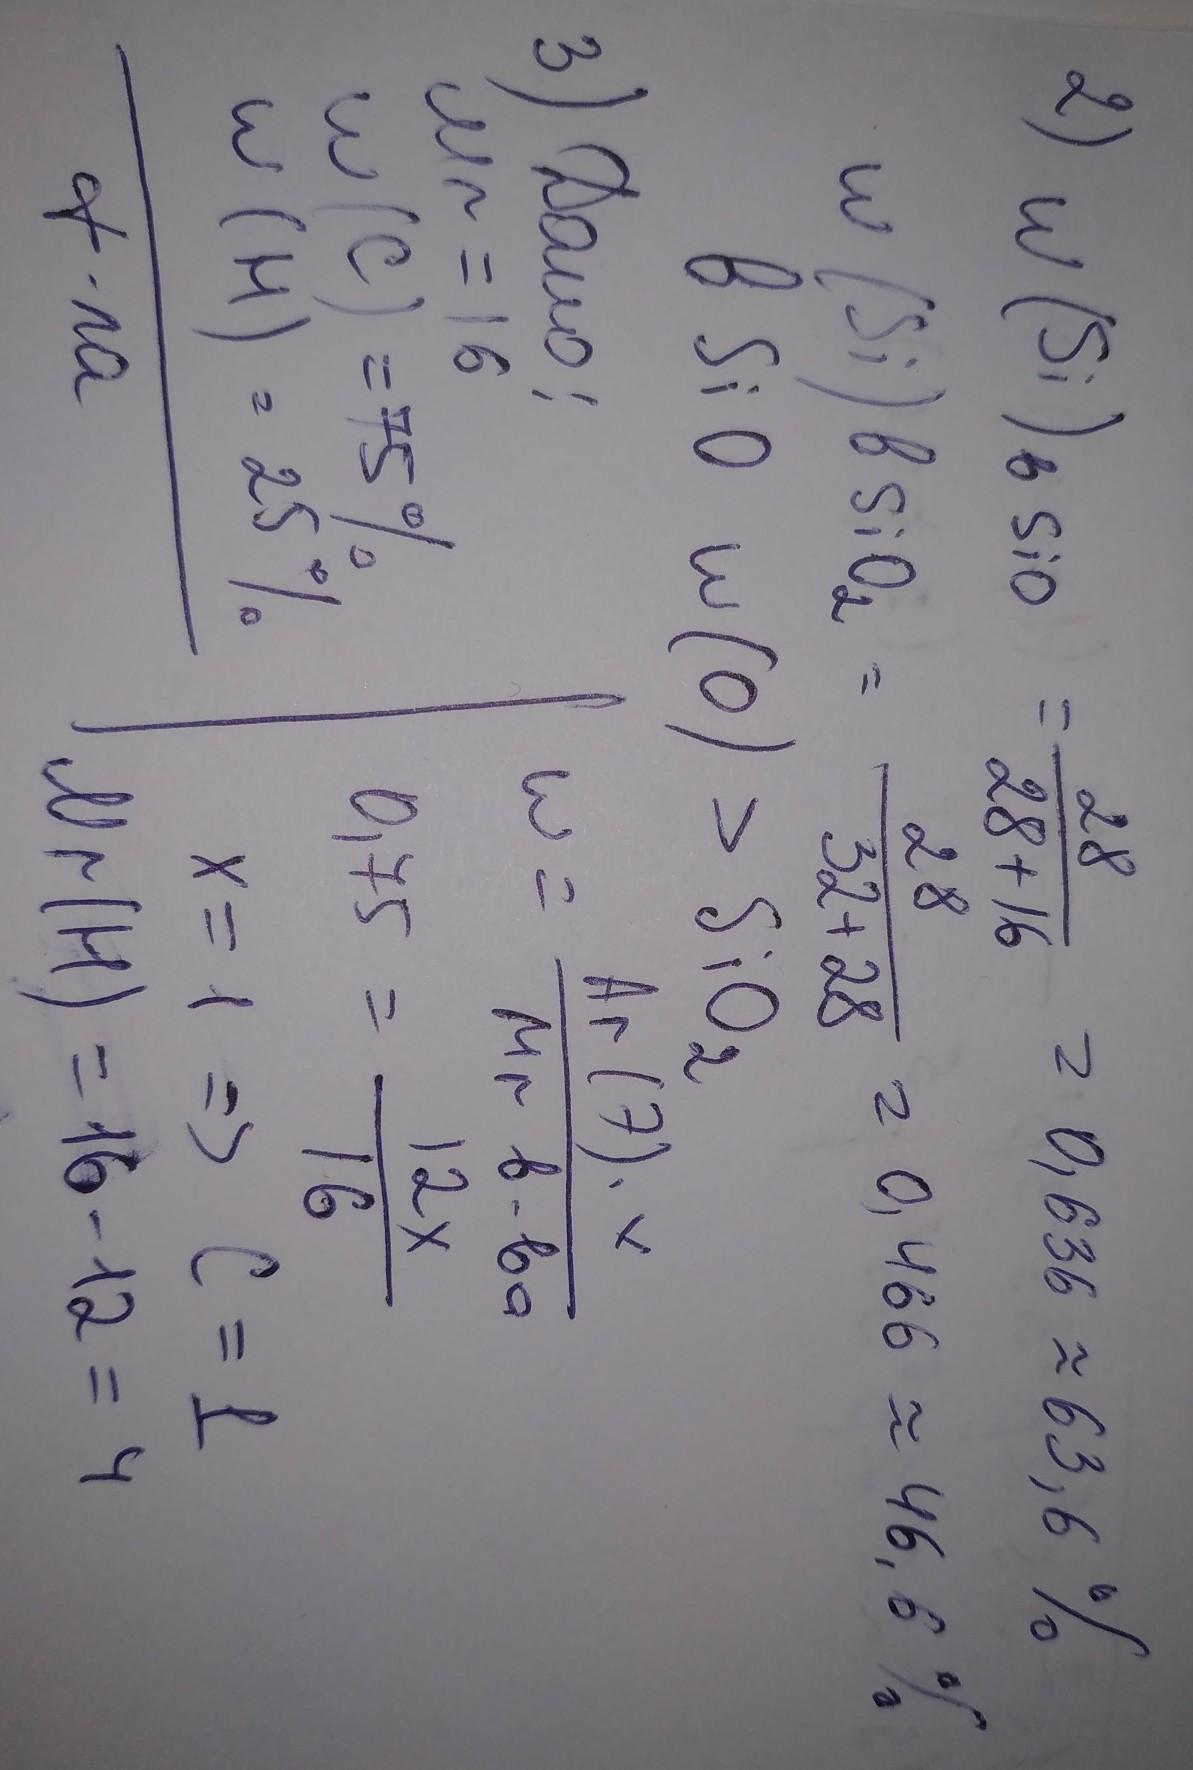 2) w (Si) в SiO = 28 / 28+16 = 0,636 ≈ 63,6 %
w (Si) в SiO₂ = 28 / 32+28 = 0,466 ≈ 46,6 %
в SiO w(O) > SiO₂
3) Дано:
Mr = 16
w (C) = 75%
w (H) = 25%
ф-ла
w = Ar (Э) · x / Mr в-ва
0,75 = 12x / 16
x = 1 => C = 1
Mr(H) = 16-12 = 4